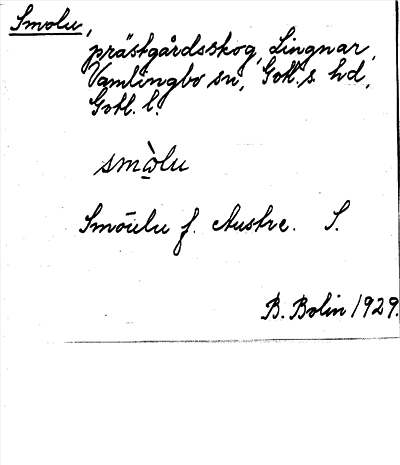 Smolu,
prästgårdsskog, Lingnar,
Vamlingbo sn, Gotl. s. hd,
Gotl. l.
smò̱lu
Smōulu f. Austre. S.
B. Bolin 1929.